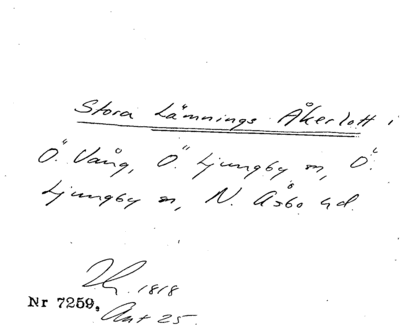 Stora Lämnings Åkerlott i
Ö. Vång, Ö. Ljungby sn, Ö.
Ljungby sn, N. Åsbo hd.
1818
Nr 7259, Ant 25